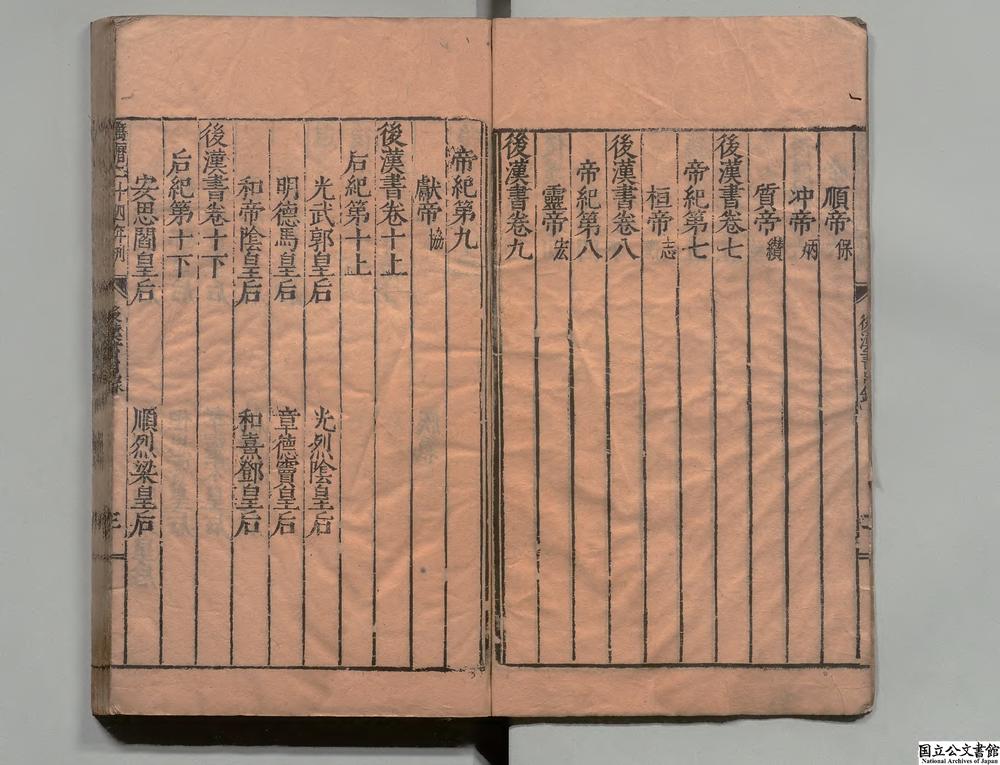 順帝保
冲帝炳
質帝纘
後漢書卷七
帝紀第七
桓帝志
後漢書卷八
帝紀第八
靈帝宏
後漢書卷九
帝紀第九
獻帝協
後漢書卷十上
后紀第十上
光武郭皇后 光烈陰皇后
明德馬皇后 章德竇皇后
和帝陰皇后 和熹鄧皇后
後漢書卷十下
后紀第十下
安思閻皇后 順烈梁皇后
萬曆二十四年刊 後漢書目錄
国立公文書館
National Archives of Japan